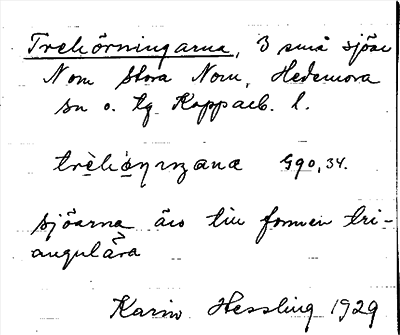 Trehörningarna, 3 små sjöar
Nom Stora Norn, Hedemora
sn o. tg Koppaeb. l.
trèhö̀ɳɩŋana Ggo, 34.
sjöarna äro till formen tri-
angulära
Karin Hessling 1929